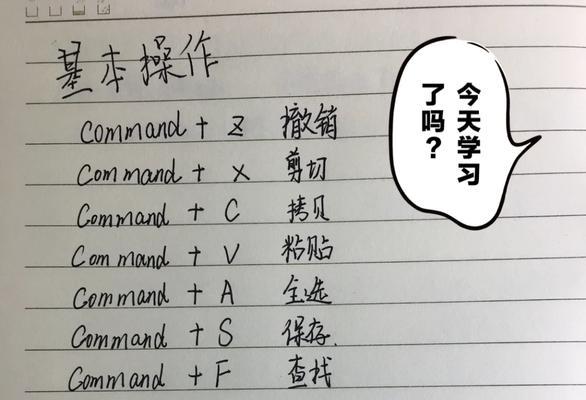 基本操作
Command + Z 撤销
Command + X 剪切
Command + C 拷贝
Command + V 粘贴
Command + A 全选
Command + S 保存.
Command + F 查找
今天学习
了吗？